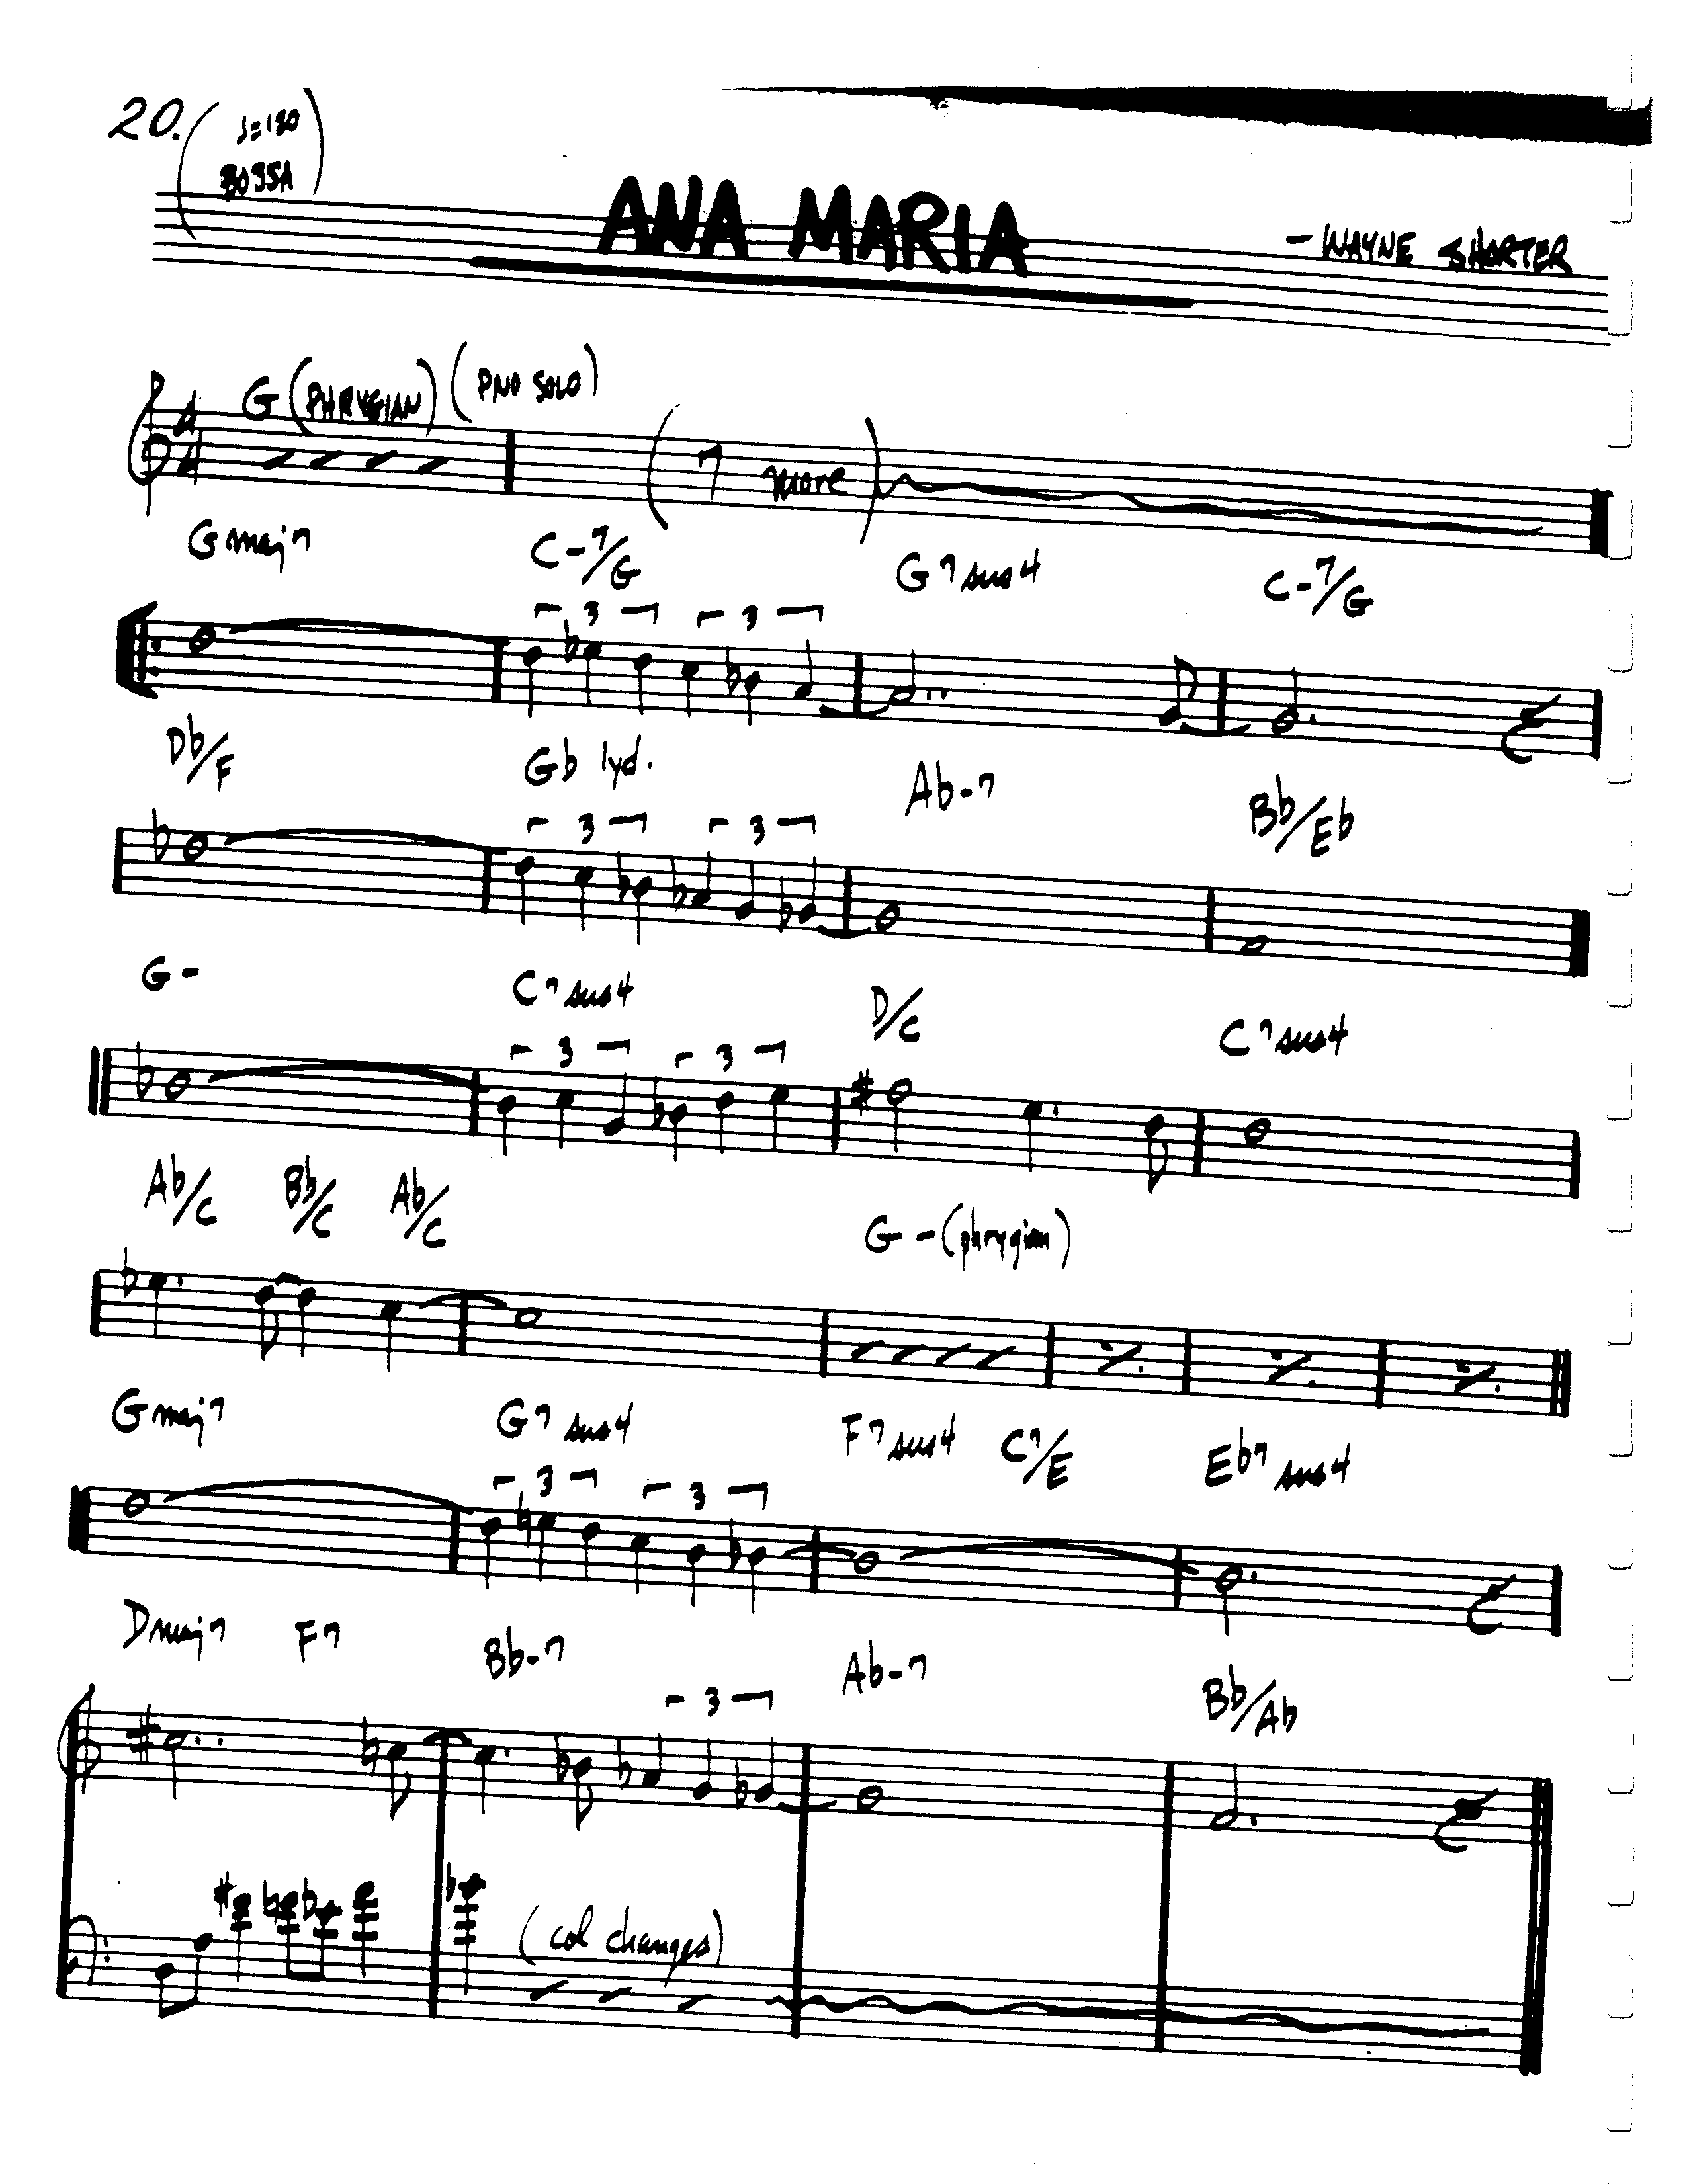 20. (♩=130
BOSSA)
ANA MARIA
- WAYNE SHORTER
G (PHRYGIAN) (PNO SOLO)
4
4
(7 more)
Gmaj7 C-7/G G7sus4 C-7/G
3 3
Db/F Gb lyd. Ab-7 Bb/Eb
3 3
G- C7sus4 D/C C7sus4
3 3
Ab/C Bb/C Ab/C G-(phrygian)
Gmaj7 G7sus4 F7sus4 C7/E Eb7sus4
3 3
Dmaj7 F7 Bb-7 Ab-7 Bb/Ab
3
(col changes)